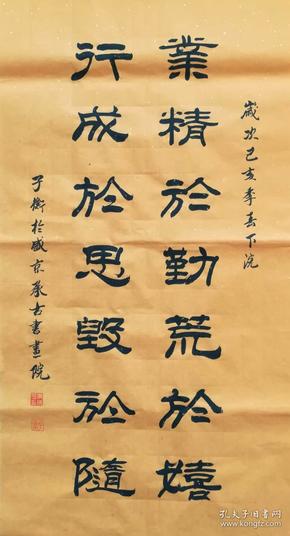 歲次己亥季春下浣
業精於勤荒於嬉
行成於思毀於隨
子衡於盛京承古書畫院
孔夫子旧书网